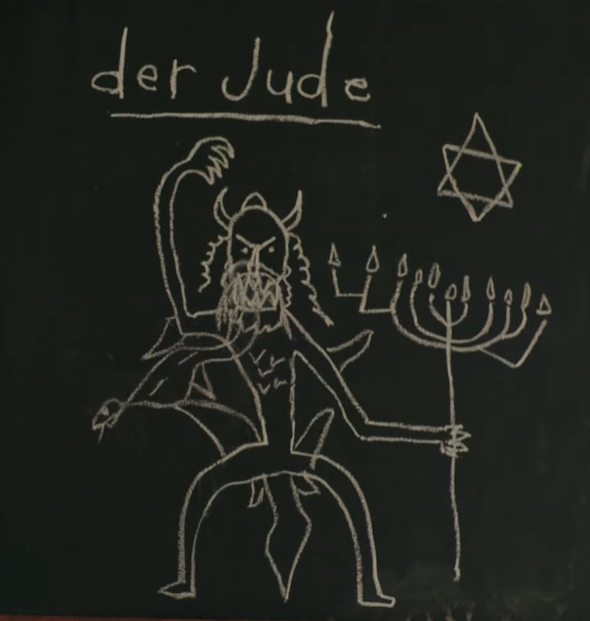 der Jude